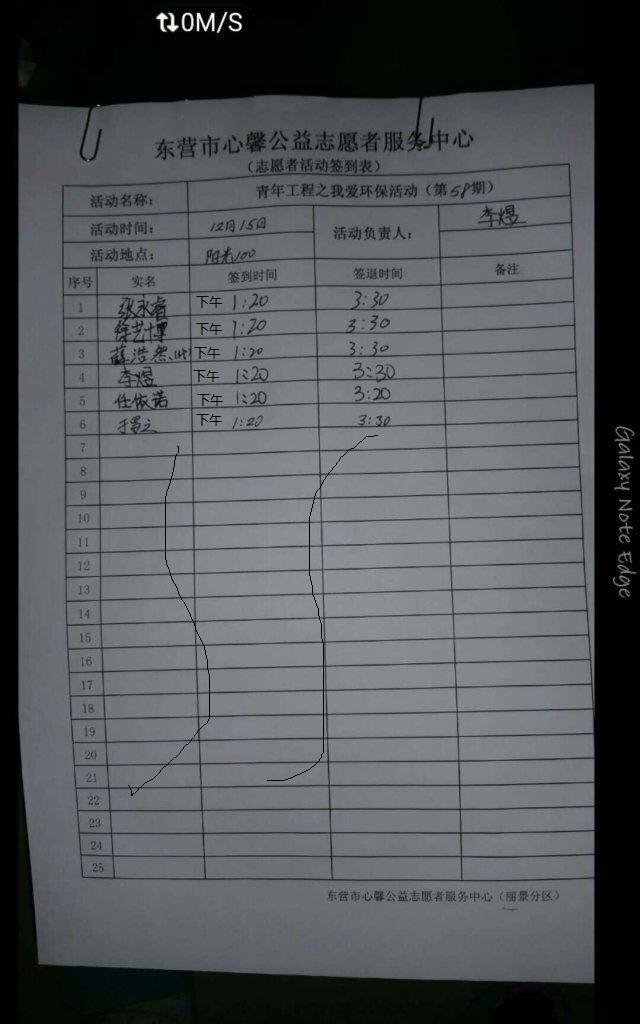 ⇅0M/S
东营市心馨公益志愿者服务中心
(志愿者活动签到表)
活动名称: 青年工程之我爱环保活动(第58期)
活动时间: 12月15日 活动负责人: 李煜
活动地点: 阳光100
序号 实名 签到时间 签退时间 备注
1 张永睿 下午 1:20 3:30
2 徐艺博 下午 1:20 3:30
3 薛浩然 下午 1:20 3:30
4 李煜 下午 1:20 3:30
5 任依诺 下午 1:20 3:20
6 下午 1:20 3:30
7
8
9
10
11
12
13
14
15
16
17
18
19
20
21
22
23
24
25
东营市心馨公益志愿者服务中心(丽景分区)
Galaxy Note Edge